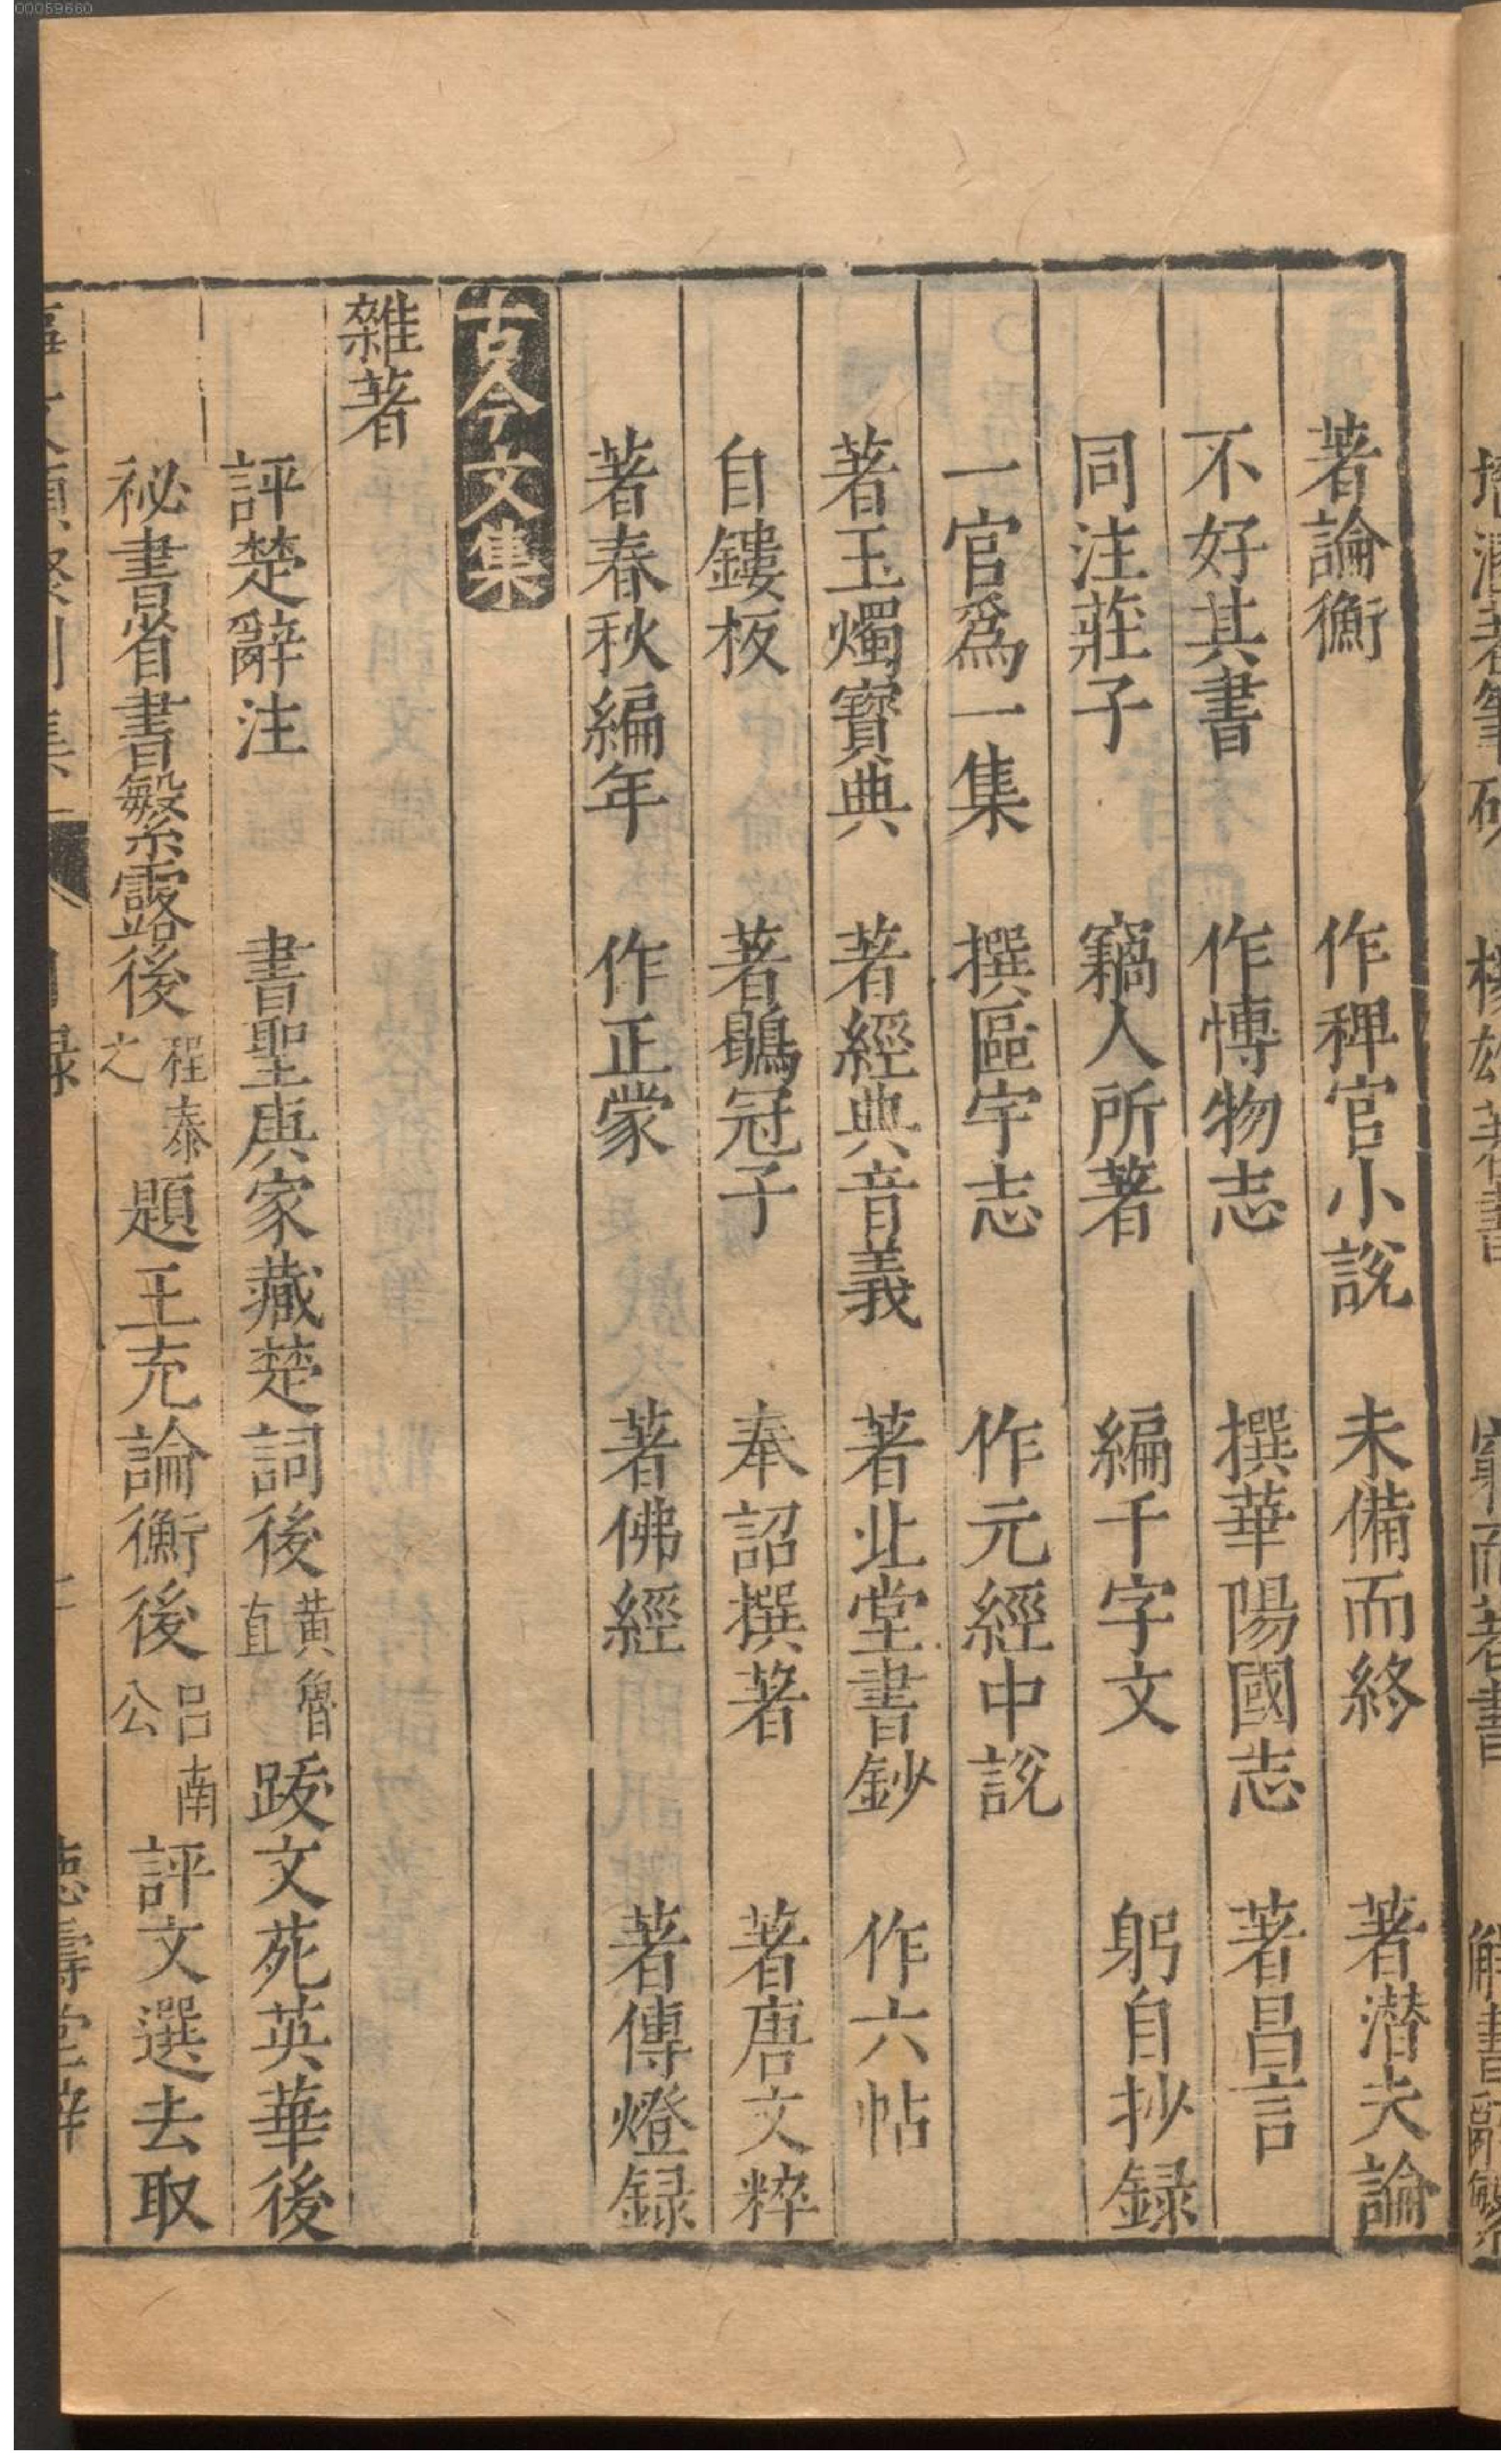 00059660
著論衡 作稗官小說 未備而終 著潛夫論
不好其書 作博物志 撰華陽國志 著昌言
同注莊子 竊人所著 編千字文 躬自抄録
一官爲一集 撰區宇志 作元經中說
著玉燭寶典 著經典音義 著北堂書鈔 作六帖
自鏤板 著鶡冠子 奉詔撰著 著唐文粹
著春秋編年 作正蒙 著佛經 著傳燈録
古今文集
雜著
評楚辭注 書聖庾家藏楚詞後 黄魯直 跋文苑英華後
祕書省書繁露後 程泰之 題王充論衡後 呂南公 評文選去取